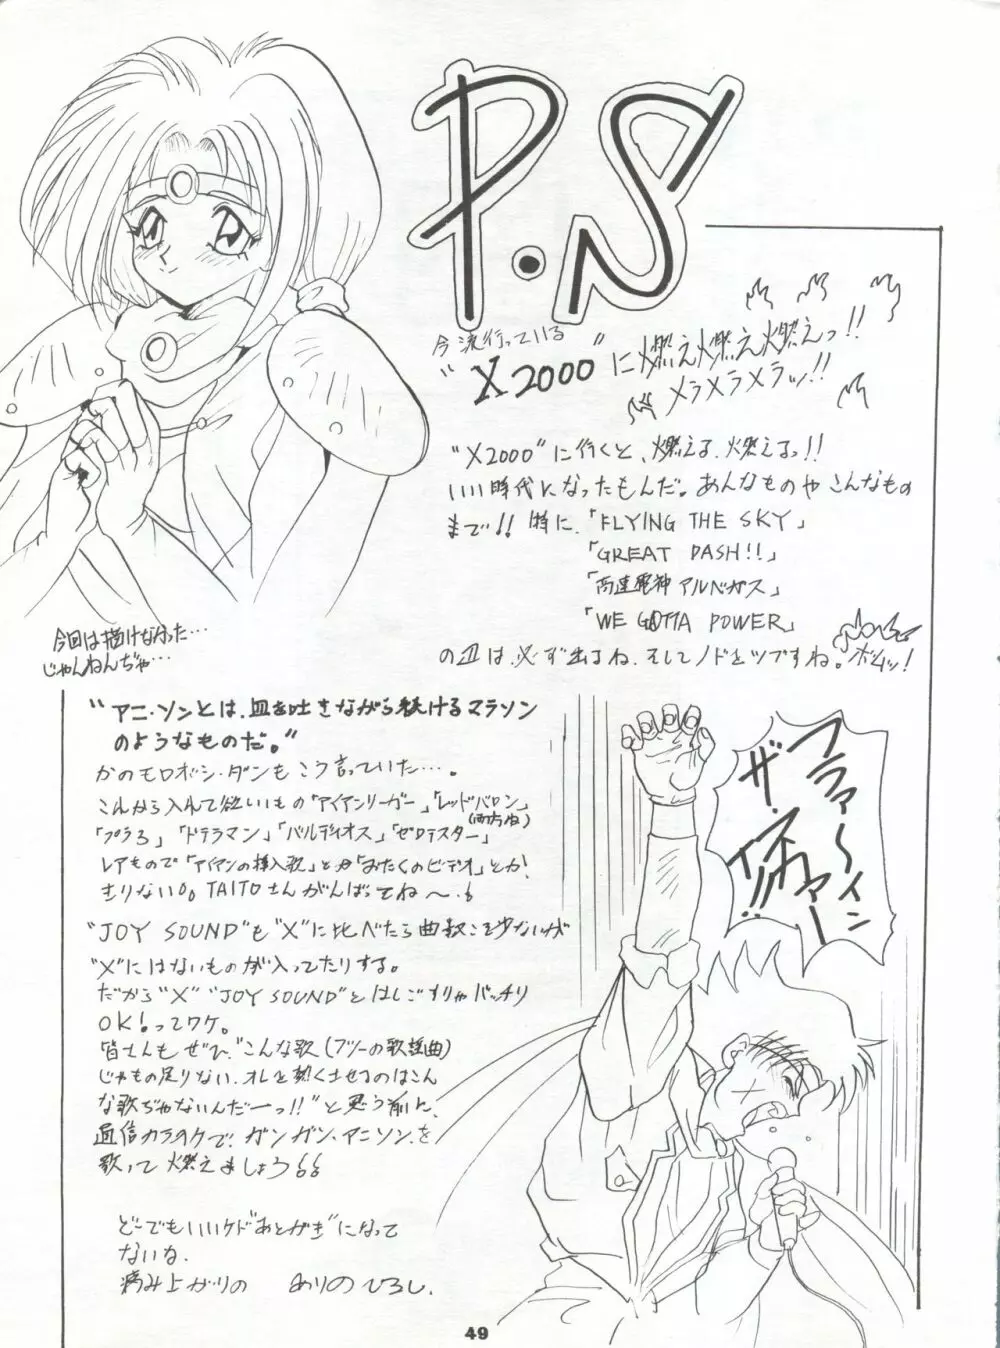 P.S
今流行っている
"X2000"に燃え燃え燃えっ!!
メラメラメラッ!!
"X2000"に行くと、燃える、燃えるっ!!
いい時代になったもんだ。あんなものや こんなもの
まで!! 特に、「FLYING THE SKY」
「GREAT DASH!!」
「高速電神アルベガス」
「WE GOTTA POWER」
の皿は必ず出るね、そしてノドとツブすね。ボムッ!
今回は描けなかった…
じゃんねんぢゃ…
"アニ・ソンとは、血を吐きながら続けるマラソン
のようなものだ。"
かのモロボシ・ダンもこう言っていた…。
こんから入れて欲しいもの「アイアンリーガー」「レッドバロン」
(両方ね)
「プラ3」「ドテラマン」「バルディオス」「ゼロテスター」
レアもので「アイアンの挿入歌」とか「おたくのビデオ」とか!
きりない。TAITOさんがんばってね〜
"JOY SOUND"も"X"に比べたら曲数こそ少ないが
"X"にはないものが入ってたりする。
だから"X""JOY SOUND"とはしごすりゃバッチリ
OK!ってワケ。
皆さんもぜひ、"こんな歌(フツーの歌謡曲)
じゃもの足りない、オレを熱くさせるのはこん
な歌ぢゃないんだーっ!!"と思う前に、
通信カラオケで、ガンガン、アニソンを
歌って燃えましょう
ファ〜イン
ザ・
スカァー
イ!!
どーでもいいケド"あとがき"になって
ないな。
病み上がりの ありのひろし.
49